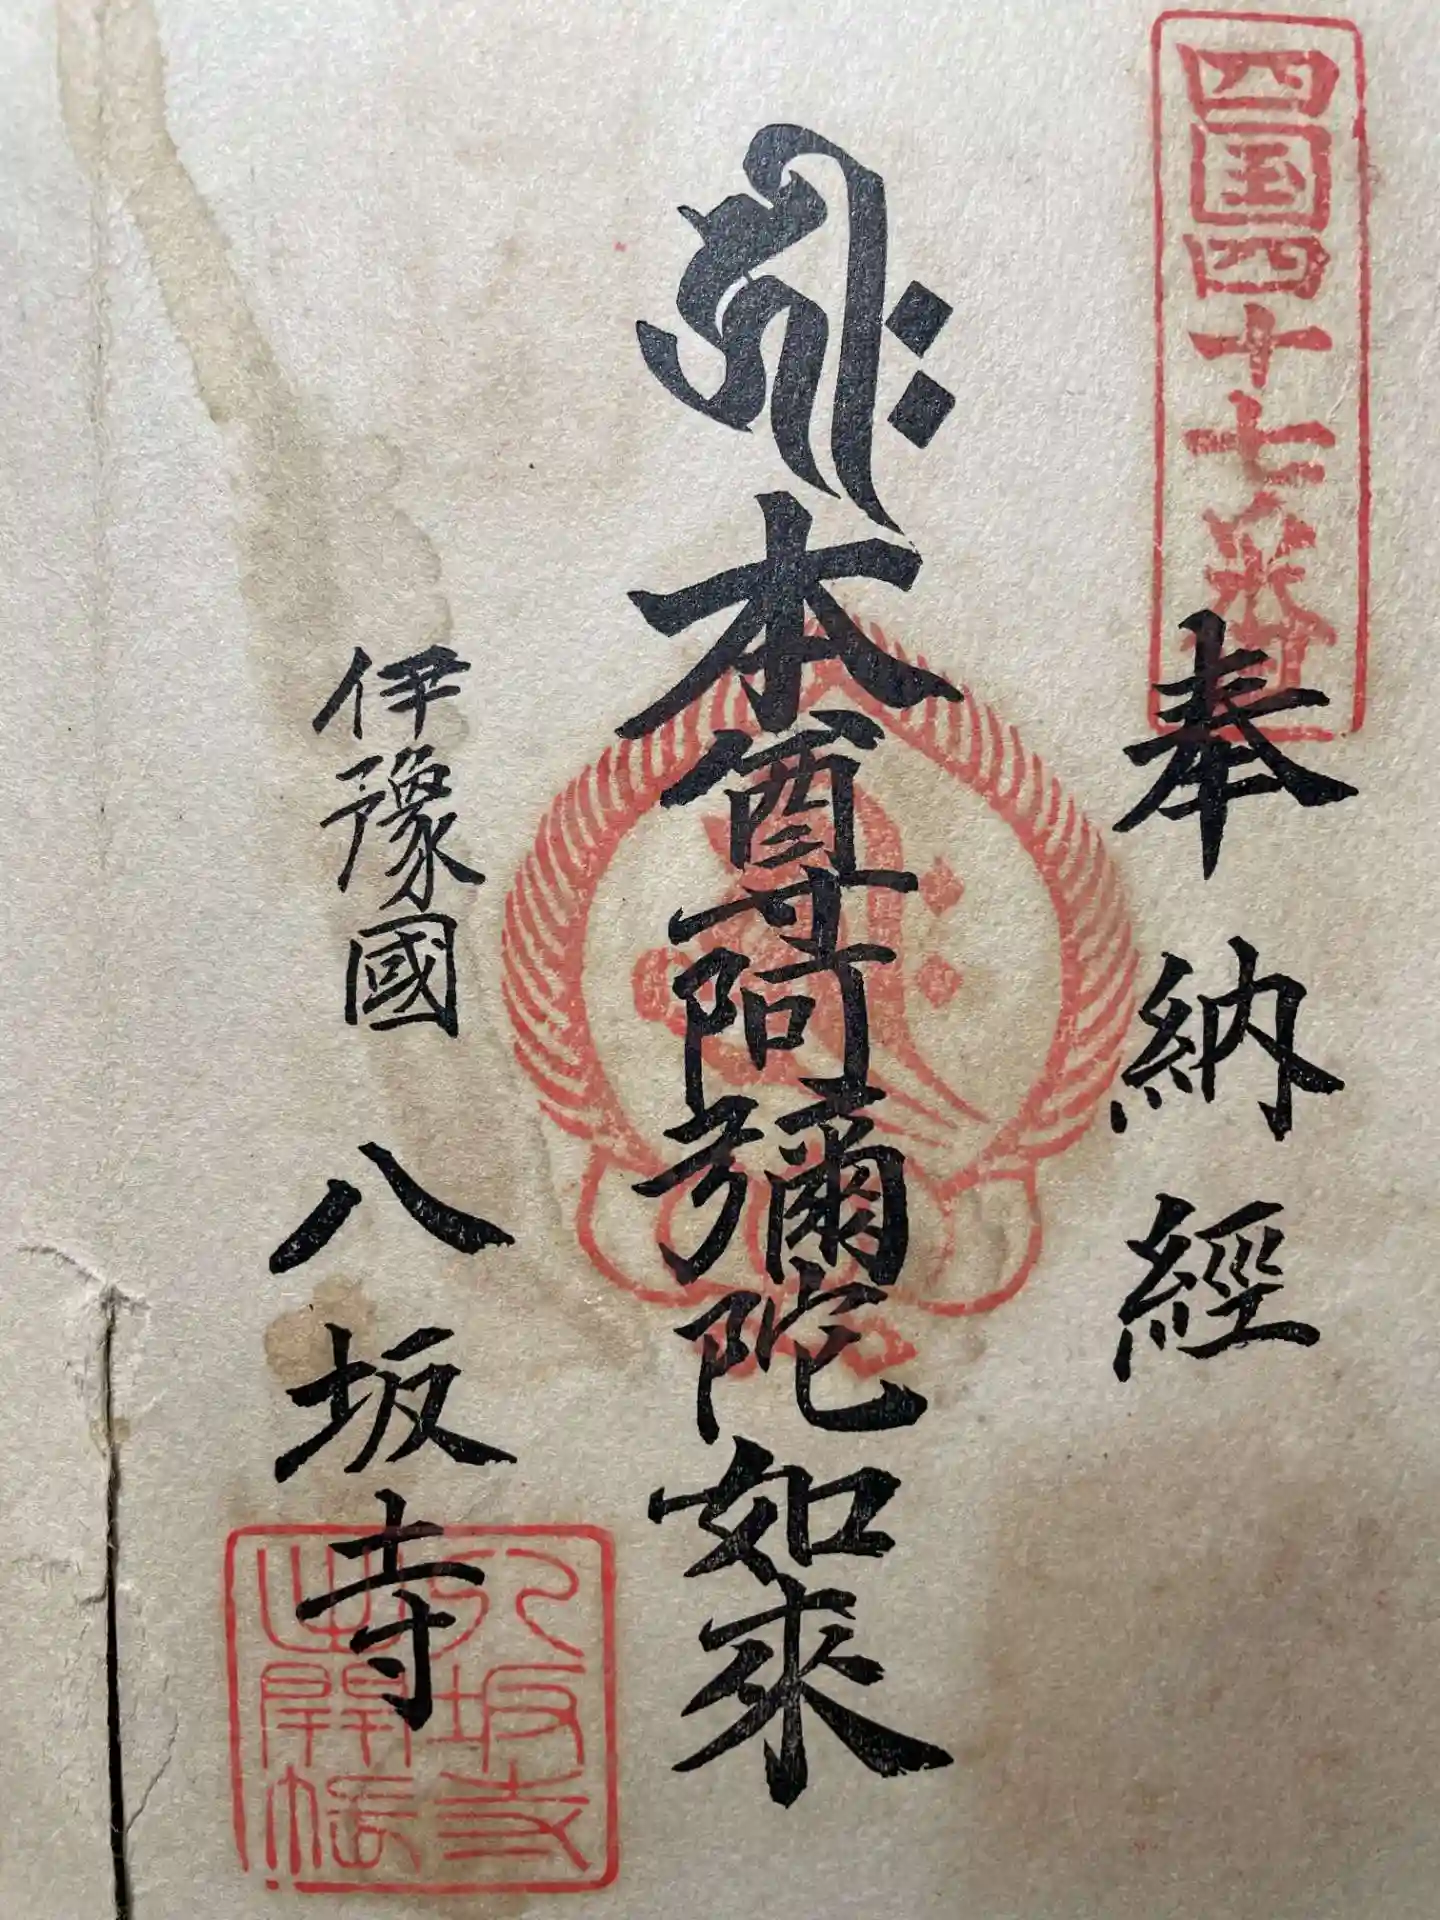 四国四十七番
奉納經
𑖮𑖿𑖨𑖱𑖾
本尊阿彌陀如来
伊豫國
八坂寺
八坂寺
出開帳